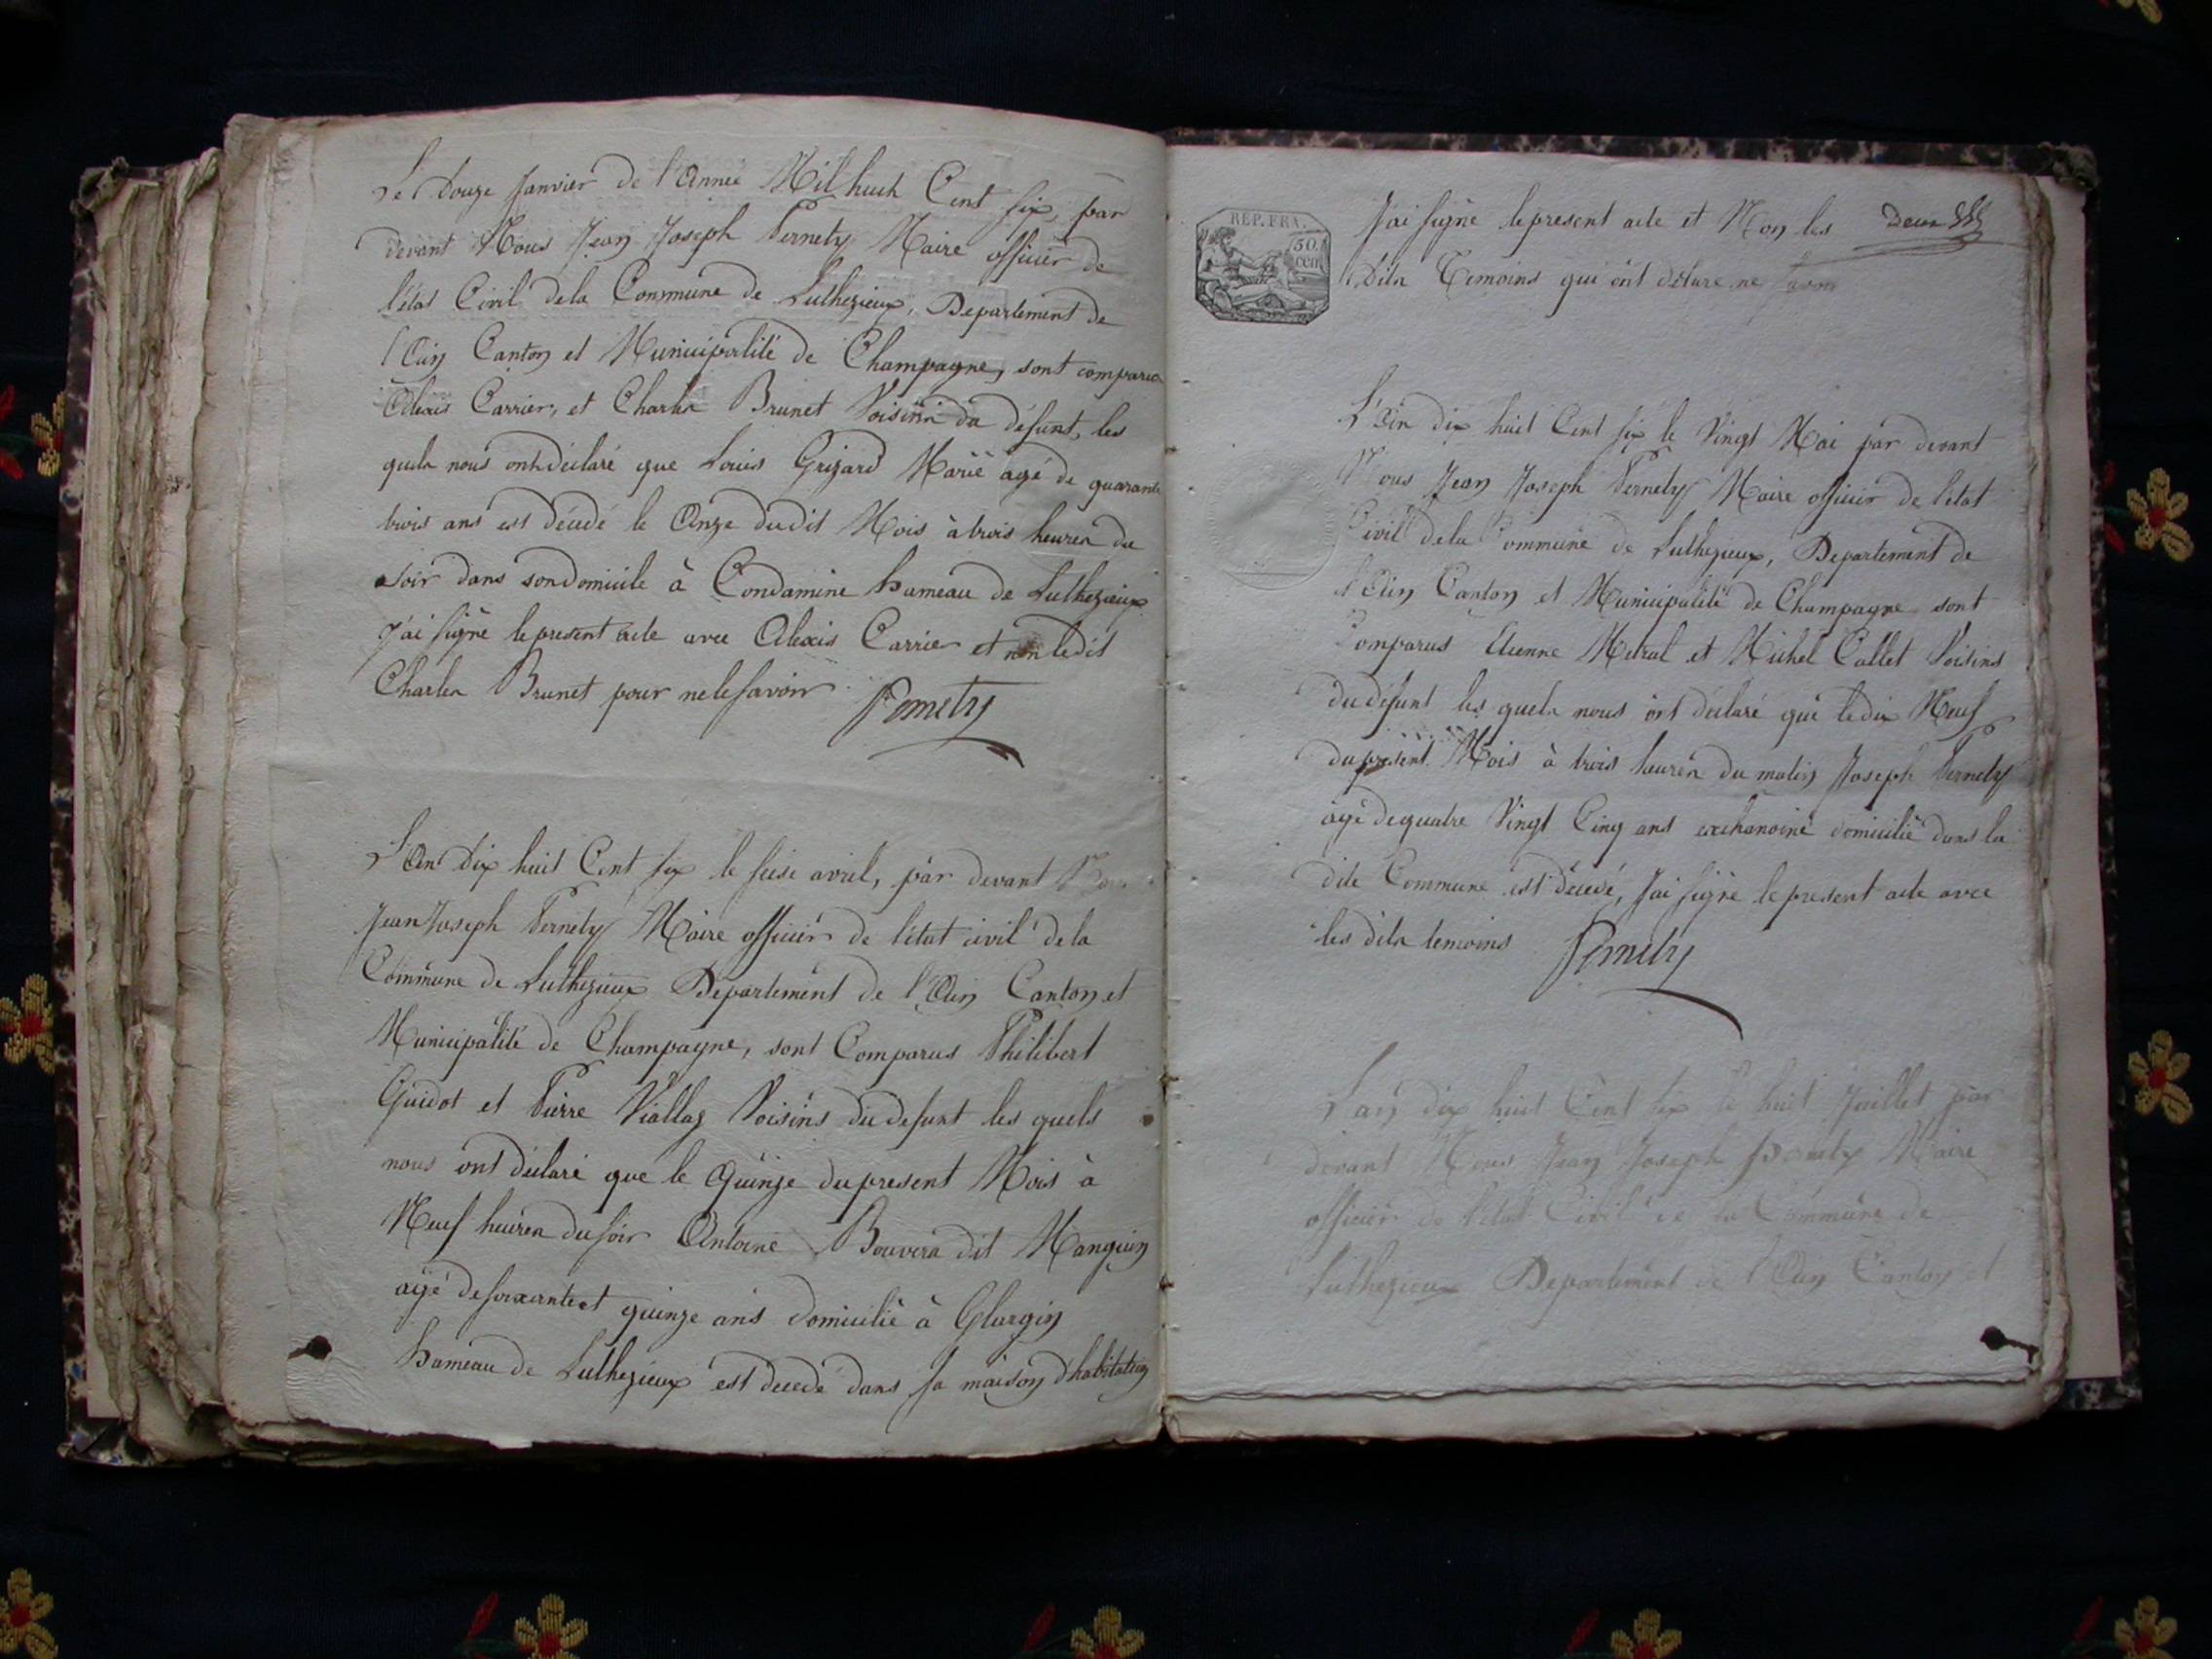 Le Douze Janvier de l'Année Mil huit Cent six, par
devant Nous Jean Joseph Pernety Maire officier de
l'état Civil dela Commune de Luthezieux, Departement de
l'Ain Canton et Municipalité de Champagne, sont comparus
Alexis Carrier, et Charles Brunet Voisins du défunt, les
quels nous ont déclaré que Louis Grizard Marié agé de quarante
trois ans est décédé le Onze dudit Mois à trois heures du
soir dans son domicile à Condamine hameau de Luthezieux
J'ai signé le present acte avec Alexis Carrier et non ledit
Charles Brunet pour ne le savoir. Pernety
L'An Dix huit Cent six le seise avril, par devant Nous
Jean Joseph Pernety Maire officier de l'état civil dela
Commune de Luthezieux Departement de l'Ain Canton et
Municipalité de Champagne, sont Comparus Philibert
Guidot et Pierre Viallaz Voisins du defunt les quels
nous ont déclaré que le Quinze du present Mois à
Neuf heures du soir Antoine dit Manguin
agé de soixante et quinze ans domicilié à
hameau de Luthezieux est decedé dans sa maison d'habitation
REP. FRA.
50.
cen
J'ai signé le present acte et Non les Deux
dits Temoins qui ont déclaré ne savoir
L'An dix huit Cent six le Vingt Mai par devant
Nous Jean Joseph Pernety Maire officier de l'état
Civil dela Commune de Luthezieux, Departement de
l'Ain Canton et Municipalité de Champagne sont
Comparus Etienne Metral et Michel Callet Voisins
du défunt les quels nous ont déclaré que le dix Neuf
du present Mois à trois heures du matin Joseph Pernety
agé de quatre Vingt Cinq ans exchanoine domicilié dans la
dite Commune est décedé, J'ai signé le present acte avec
les dits temoins Pernety
L'an dix huit Cent six le huit Juillet par
devant Nous Jean Joseph Pernety Maire
officier de l'état Civil de la Commune de
Luthezieux Departement de l'Ain Canton et